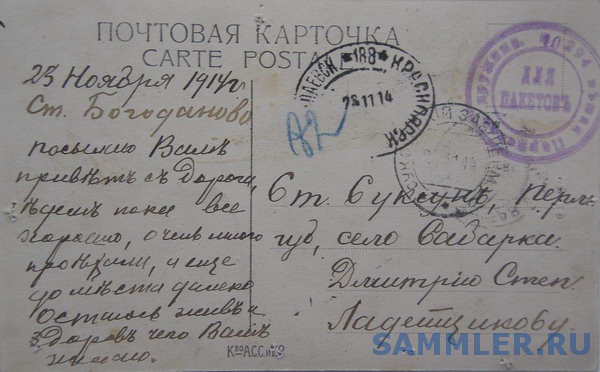 ПОЧТОВАЯ КАРТОЧКА
CARTE POSTA
23 Ноября 1914 г
Ст. Богоданово
посылаю Вамъ
привѣтъ съ дороги,
ѣдемъ пока все
хорошо, очень много
проѣхали, и еще
до мѣста далеко
остаюсь живъ и
здоровъ чего Вамъ
желаю.
КвоАСС.и№9
188 КРАСНОЯРСК
28 11 14
82
ДЛЯ
ПАКЕТОВЪ
Ст. Суксунъ Перм.
губ, село Сабарка.
Дмитрію Степ.
Ладейщикову.
SAMMLER.RU